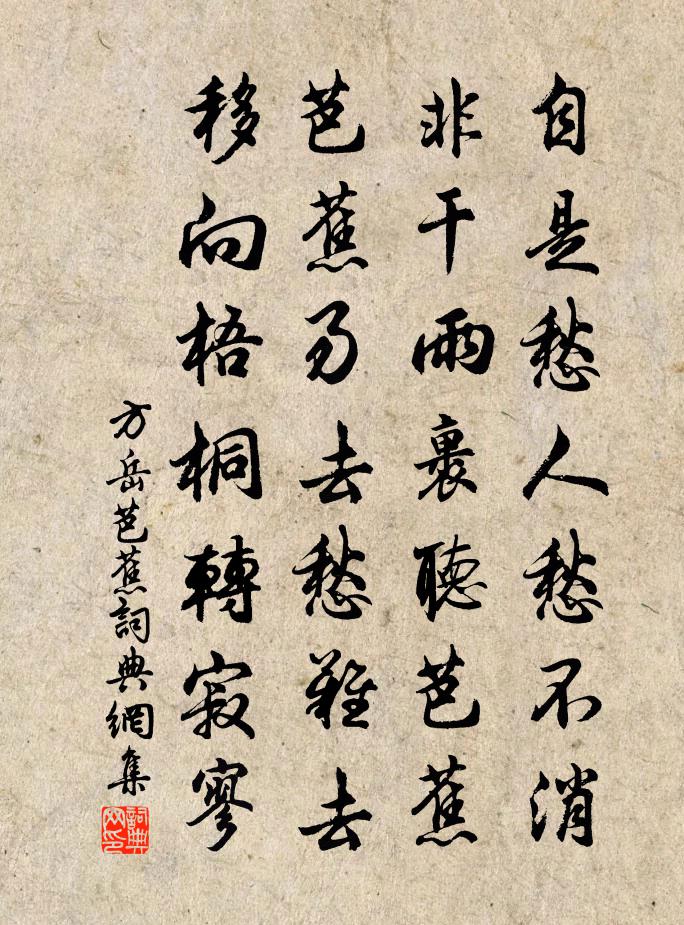 自是愁人愁不消
非干雨裏聽芭蕉
芭蕉易去愁難去
移向梧桐轉寂寥
方岳芭蕉詞典網集
詞典
网印